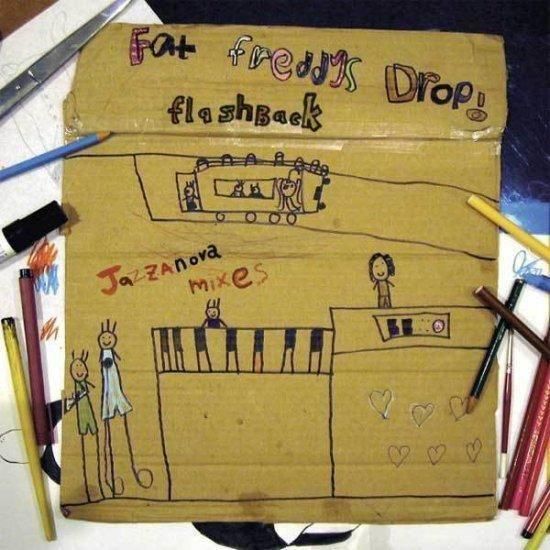 Fat freddys Drop!
flashBack
JaZZAnova
mixes